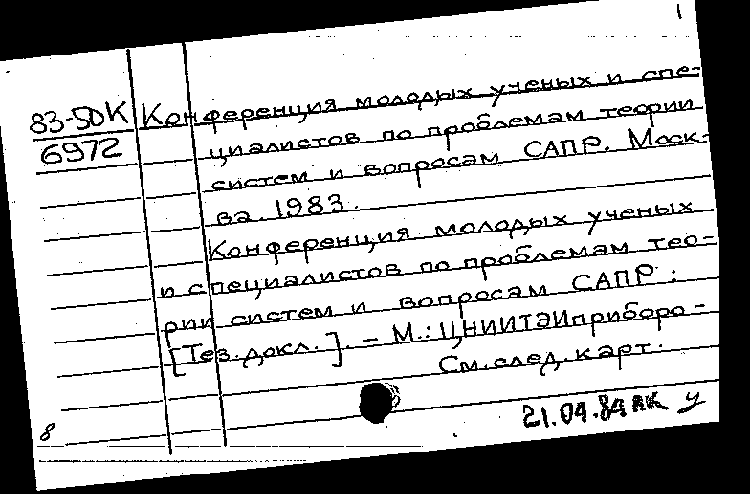 1
83-5DК Конференция молодых ученых и спе-
6972 циалистов по проблемам теории
систем и вопросам САПР. Моск-
ва. 1983.
Конференция молодых ученых
и специалистов по проблемам тео-
рии систем и вопросам САПР:
[Тез. докл.]. – М.: ЦНИИТЭИприборо-
См. след. карт.
21.04.84
8